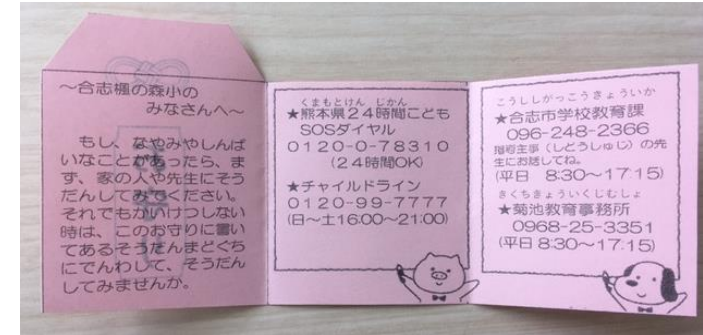 ～合志楓の森小の
みなさんへ～
もし、なやみやしんぱ
いなことがあったら、ま
ず、家の人や先生にそう
だんしてみてください。
それでもかいけつしない
時は、このお守りに書い
てあるそうだんまどぐち
にでんわして、そうだん
してみませんか。
くまもとけん じかん
★熊本県24時間こども
SOSダイヤル
0120-0-78310
(24時間OK)
★チャイルドライン
0120-99-7777
(日～土16:00～21:00)
こうししがっこうきょういくか
★合志市学校教育課
096-248-2366
指導主事（しどうしゅじ）の先
生にお話してね。
(平日 8:30～17:15)
きくちきょういくじむしょ
★菊池教育事務所
0968-25-3351
(平日 8:30～17:15)